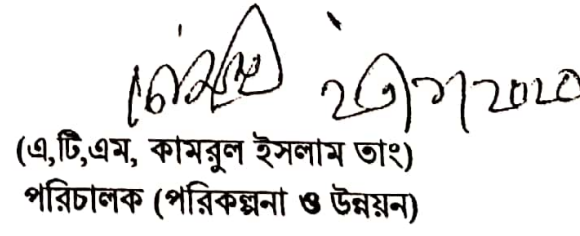 (এ,টি,এম, কামরুল ইসলাম তাং)
পরিচালক (পরিকল্পনা ও উন্নয়ন)